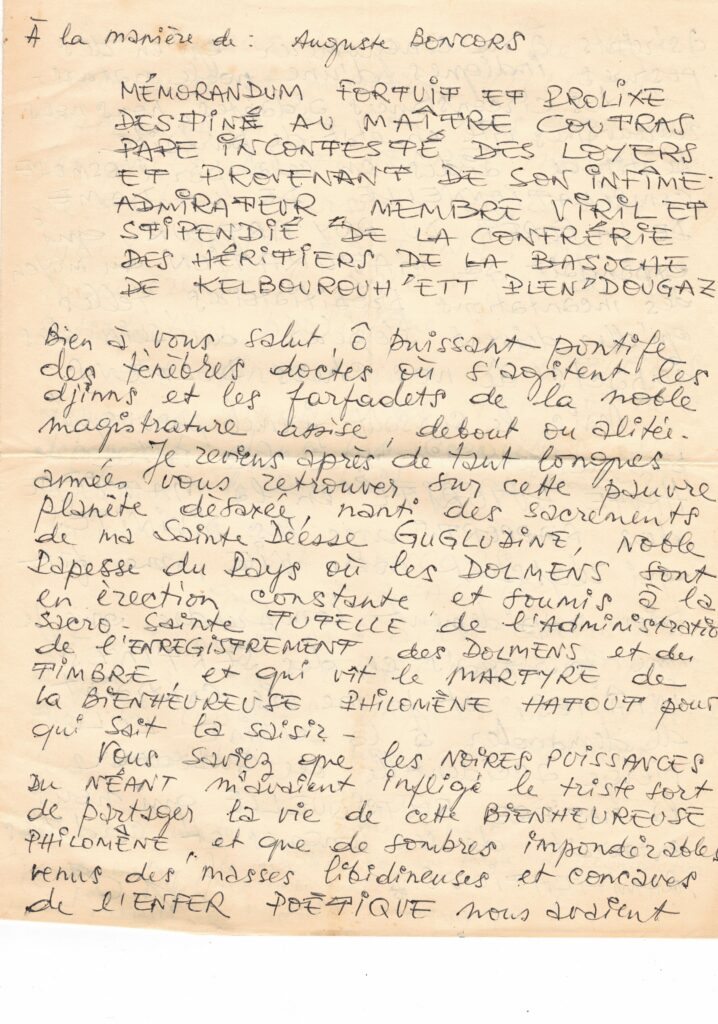 À la manière de : Auguste BONCORS
MÉMORANDUM FORTUIT ET PROLIXE
DESTINÉ AU MAÎTRE COUTRAS
PAPE INCONTESTÉ DES LOYERS
ET PROVENANT DE SON INFÎME
ADMIRATEUR MEMBRE VIRIL ET
STIPENDIÉ DE LA CONFRÉRIE
DES HÉRITIERS DE LA BASOCHE
DE KELBOUROUH'ETT PLEN"DOUGAZ
Bien à vous salut, ô puissant pontife
des ténèbres doctes où s'agitent les
djinns et les farfadets de la noble
magistrature assise, debout ou alitée.
Je reviens après de tant longues
années vous retrouver sur cette pauvre
planète désaxée, nanti des sacrements
de ma Sainte Déesse GUGLUDINE, NOBLE
Papesse du Pays où les DOLMENS sont
en érection constante, et soumis à la
Sacro-Sainte TUTELLE de l'Administratio
de l'ENREGISTREMENT, des DOLMENS et du
TIMBRE, et qui vit le MARTYRE de
la BIENHEUREUSE PHILOMÈNE HATOUT pour
qui sait la saisir -
Vous saviez que les NOIRES PUISSANCES
DU NÉANT m'avaient infligé le triste sort
de partager la vie de cette BIENHEUREUSE
PHILOMÈNE, et que de sombres impondérables
venus des masses libidineuses et concaves
de l'ENFER POÈTIQUE nous avaient